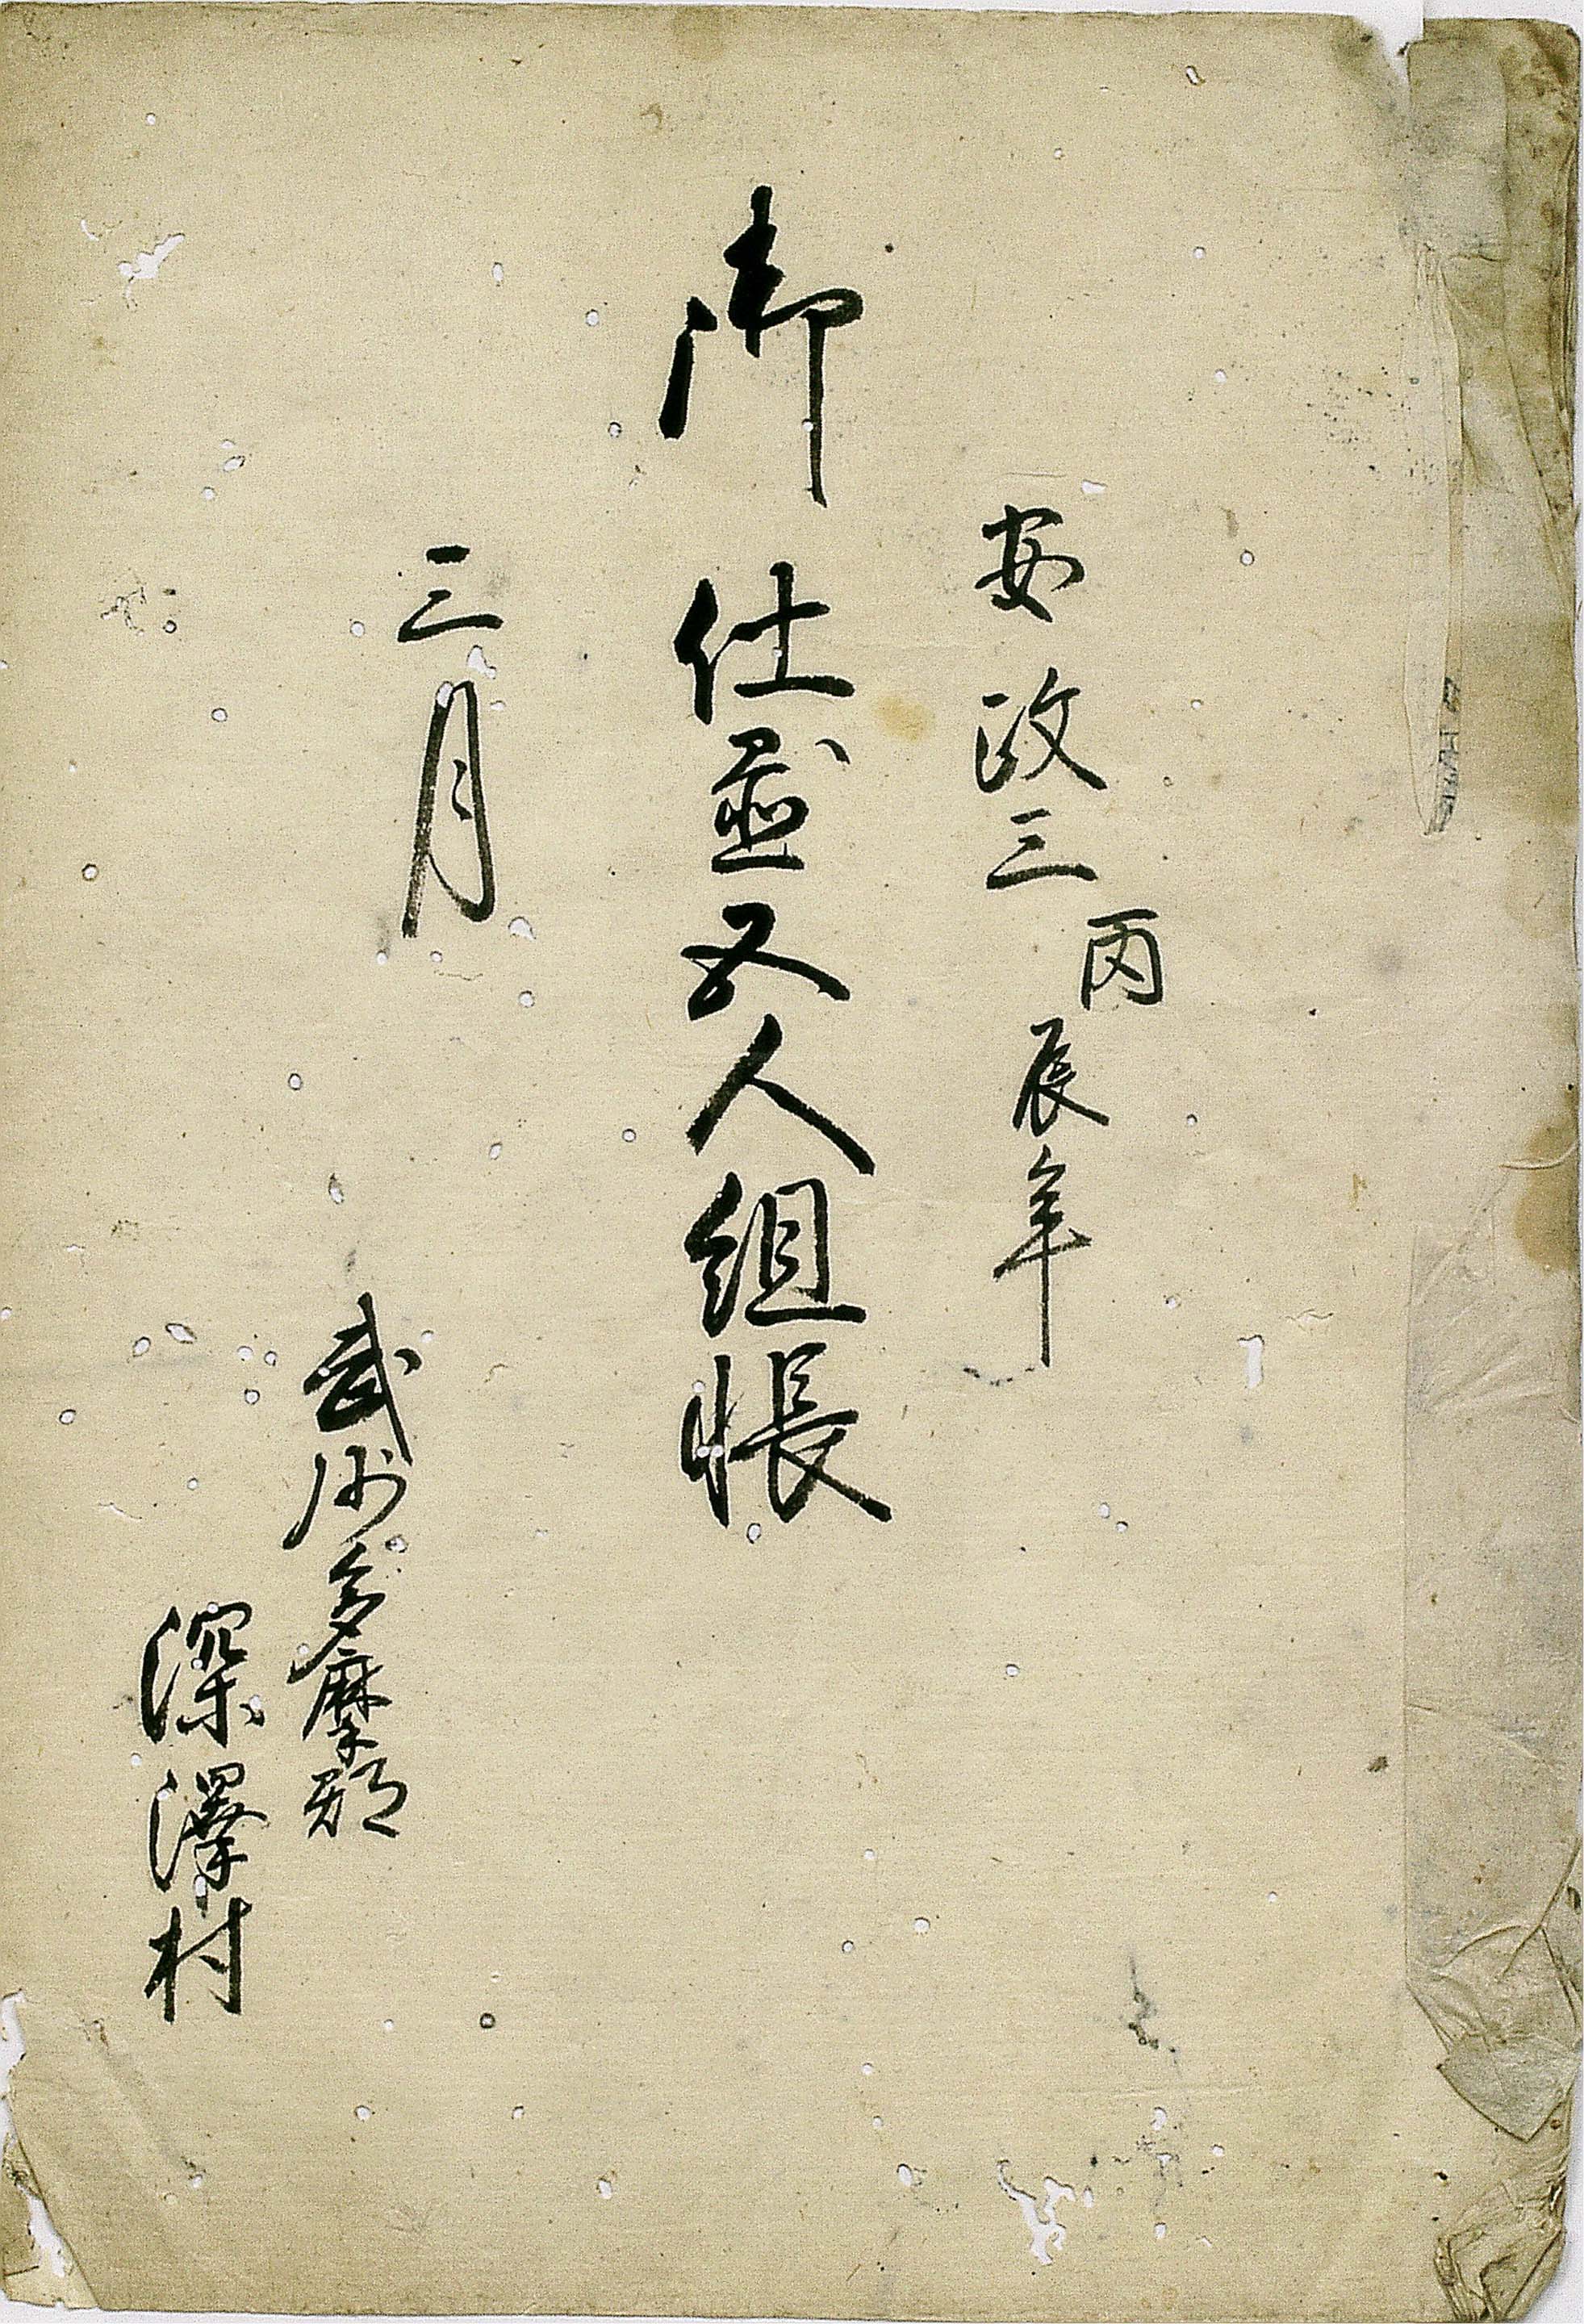 安政三丙辰年
御仕置五人組帳
三月
武州多摩郡
深澤村